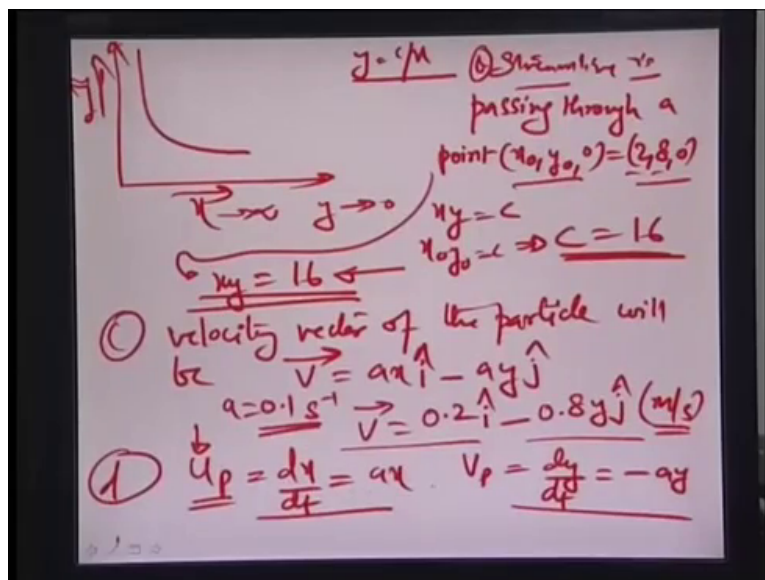 y = c/x ⓑ Streamline is
passing through a
point (x₀, y₀, 0) = (2, 8, 0)
y
x → ∞ y → 0
xy = c
x₀y₀ = c ⇒ C = 16
xy = 16 ←
ⓒ velocity vector of the particle will
be V⃗ = axî - ayĵ
a = 0.1 s⁻¹ V⃗ = 0.2 î - 0.8yĵ (m/s)
ⓓ u_p = dx/dt = ax V_p = dy/dt = -ay